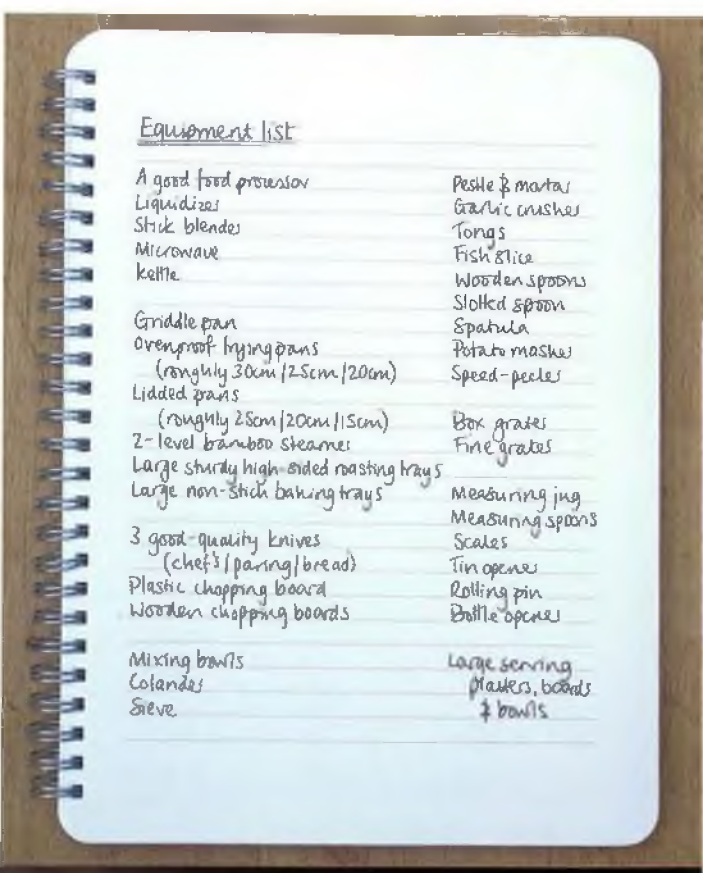 Equipment list
A good food processor
Liquidizer
Stick blender
Microwave
Kettle
Griddle pan
Ovenproof frying pans
(roughly 30cm/25cm/20cm)
Lidded pans
(roughly 25cm/20cm/15cm)
2-level bamboo steamer
Large sturdy high-sided roasting trays
Large non-stick baking trays
3 good-quality knives
(chef's/paring/bread)
Plastic chopping board
Wooden chopping boards
Mixing bowls
Colander
Sieve
Pestle & mortar
Garlic crusher
Tongs
Fish slice
Wooden spoons
Slotted spoon
Spatula
Potato masher
Speed-peeler
Box grater
Fine grater
Measuring jug
Measuring spoons
Scales
Tin opener
Rolling pin
Bottle opener
Large serving
platters, boards
& bowls